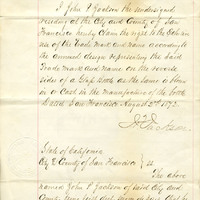 I John P Jackson the undersigned
residing at the City and County of San
Francisco hereby Claim the right to the Exclusive
use of the Trade Mark and Name according to
the annexed design representing the said
Trade Mark and Name on the reverse
sides of a Glass Bottle as the same is blown
in or Cast in the manufacture of the bottle
Dated San Francisco August 2nd 1872
Jno P Jackson
State of California
City & County of San Francisco } ss
The above
named John P Jackson of said City and
County being first duly sworn